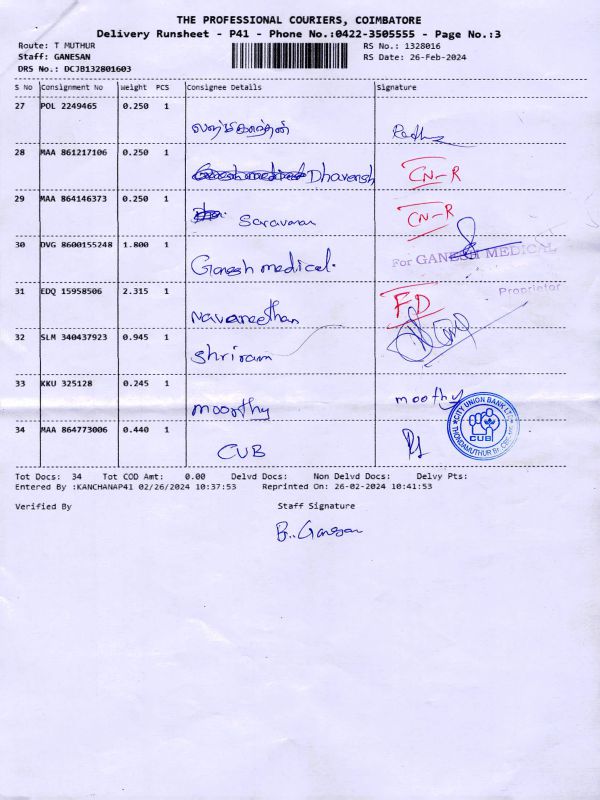 THE PROFESSIONAL COURIERS, COIMBATORE
Delivery Runsheet - P41 - Phone No.:0422-3505555 - Page No.:3
Route: T MUTHUR RS No.: 1328016
Staff: GANESAN RS Date: 26-Feb-2024
DRS No.: DCJB132801603
S No Consignment No Weight PCS Consignee Details Signature
27 POL 2249465 0.250 1
28 MAA 861217106 0.250 1 Dhavensh CN-R
29 MAA 864146373 0.250 1 Saravanan CN-R
30 DVG 8600155248 1.800 1 Ganesh medical. For GANESH MEDICAL
Proprietor
31 EDQ 15958506 2.315 1 Navaneethan FD
32 SLM 340437923 0.945 1 Shriram
33 KKU 325128 0.245 1 moorthy moothy
34 MAA 864773006 0.440 1 CUB
CITY UNION BANK LTD.
CUB
THONDAMUTHUR Br.
Tot Docs: 34 Tot COD Amt: 0.00 Delvd Docs: Non Delvd Docs: Delvy Pts:
Entered By :KANCHANAP41 02/26/2024 10:37:53 Reprinted On: 26-02-2024 10:41:53
Verified By Staff Signature
B. Ganesan